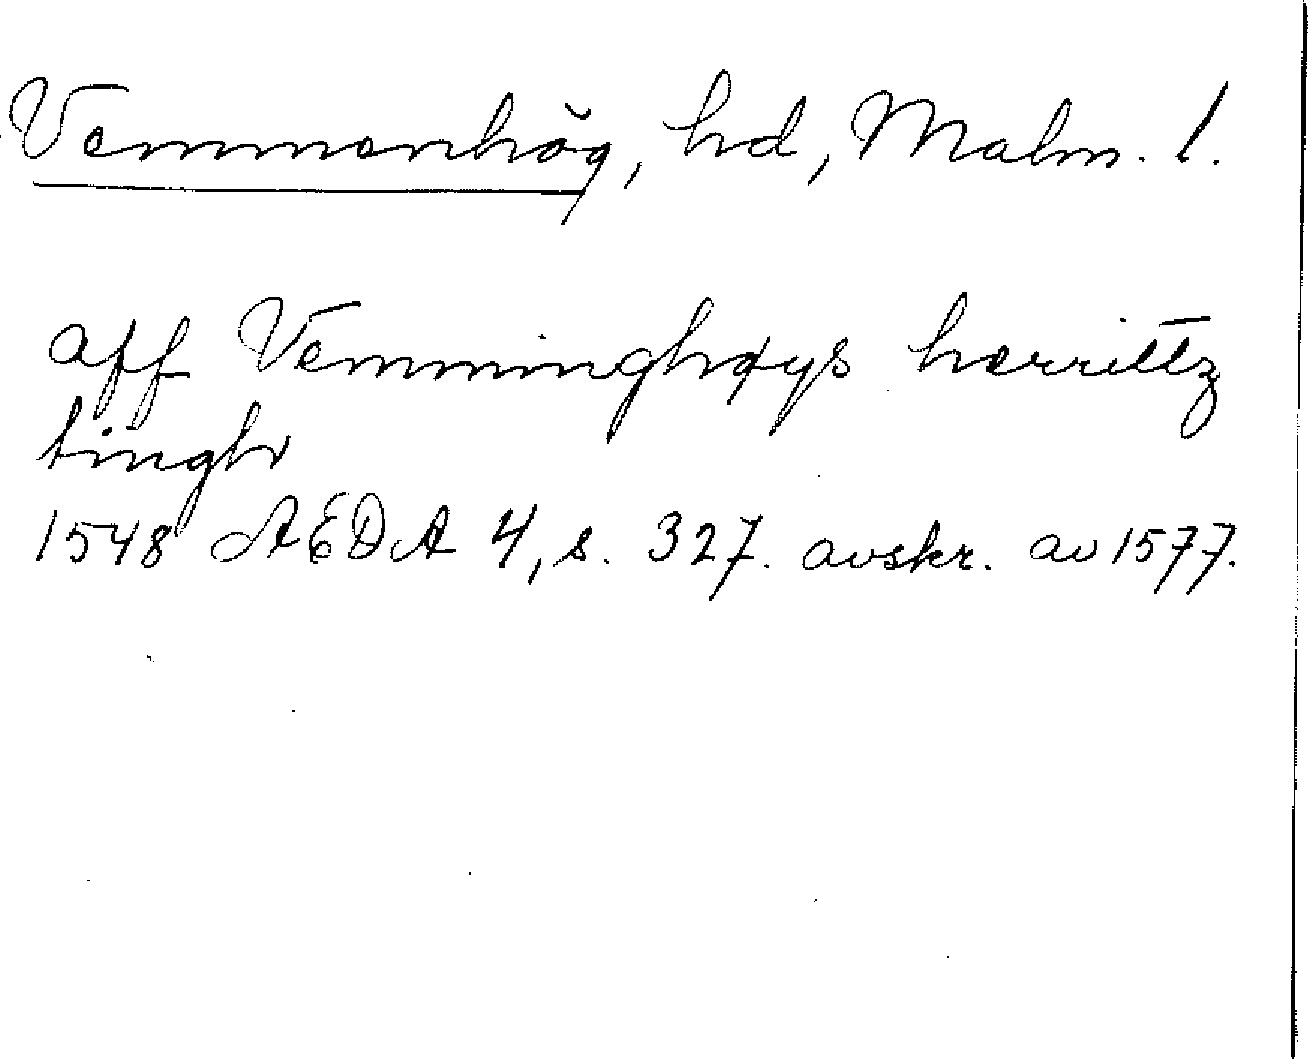 Vemmenhög, hd, Malm. l.
aff Vemminghøys herrittz
tingh
1548 AEDA 4, s. 327. avskr. av 1577.